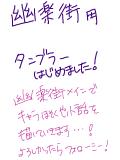 幽楽街
タンブラー
はじめました!
幽楽街メインで
キャラぼくや小話を
描いていきます…!
よろしかったらフォローミー!